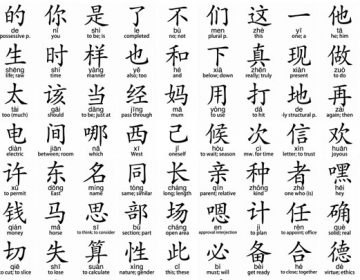 的 你 是 了 不 们 这 一 他
de nǐ shì le bù men zhè yī tā
possessive p. you to be; is completed no; not plural p. this one; a he; him
生 时 样 也 和 下 真 现 做
shēng shí yàng yě hé xià zhēn xiàn zuò
life; raw time manner also; too and below; down really; truly present to do
太 该 当 经 妈 用 打 地 再
tài gāi dāng jīng mā yòng dǎ de zài
too (much) should to be; just at pass through mum to use to hit -ly structural p. again; then
电 间 哪 西 己 候 次 信 欢
diàn jiān nǎ xī jǐ hòu cì xìn huān
electric between; room which West oneself to wait; season mw. for time letter; to trust joyous
许 东 名 同 长 亲 种 者 嘿
xǔ dōng míng tóng cháng qīn zhǒng zhě hēi
to permit East name same; similar long; length parent; relative kind one who (is) hey
钱 马 思 部 场 嗯 计 任 确
qián mǎ sī bù chǎng en jì rèn què
money horse to think; to consider section; part open area approval interjection to plan to appoint; office solid; real
切 失 算 性 此 必 备 合 德
qiē shī suàn xìng cǐ bì bèi hé dé
to cut; to slice to lose to calculate nature; gender this; these must; will get ready to close; together virtue; ethic